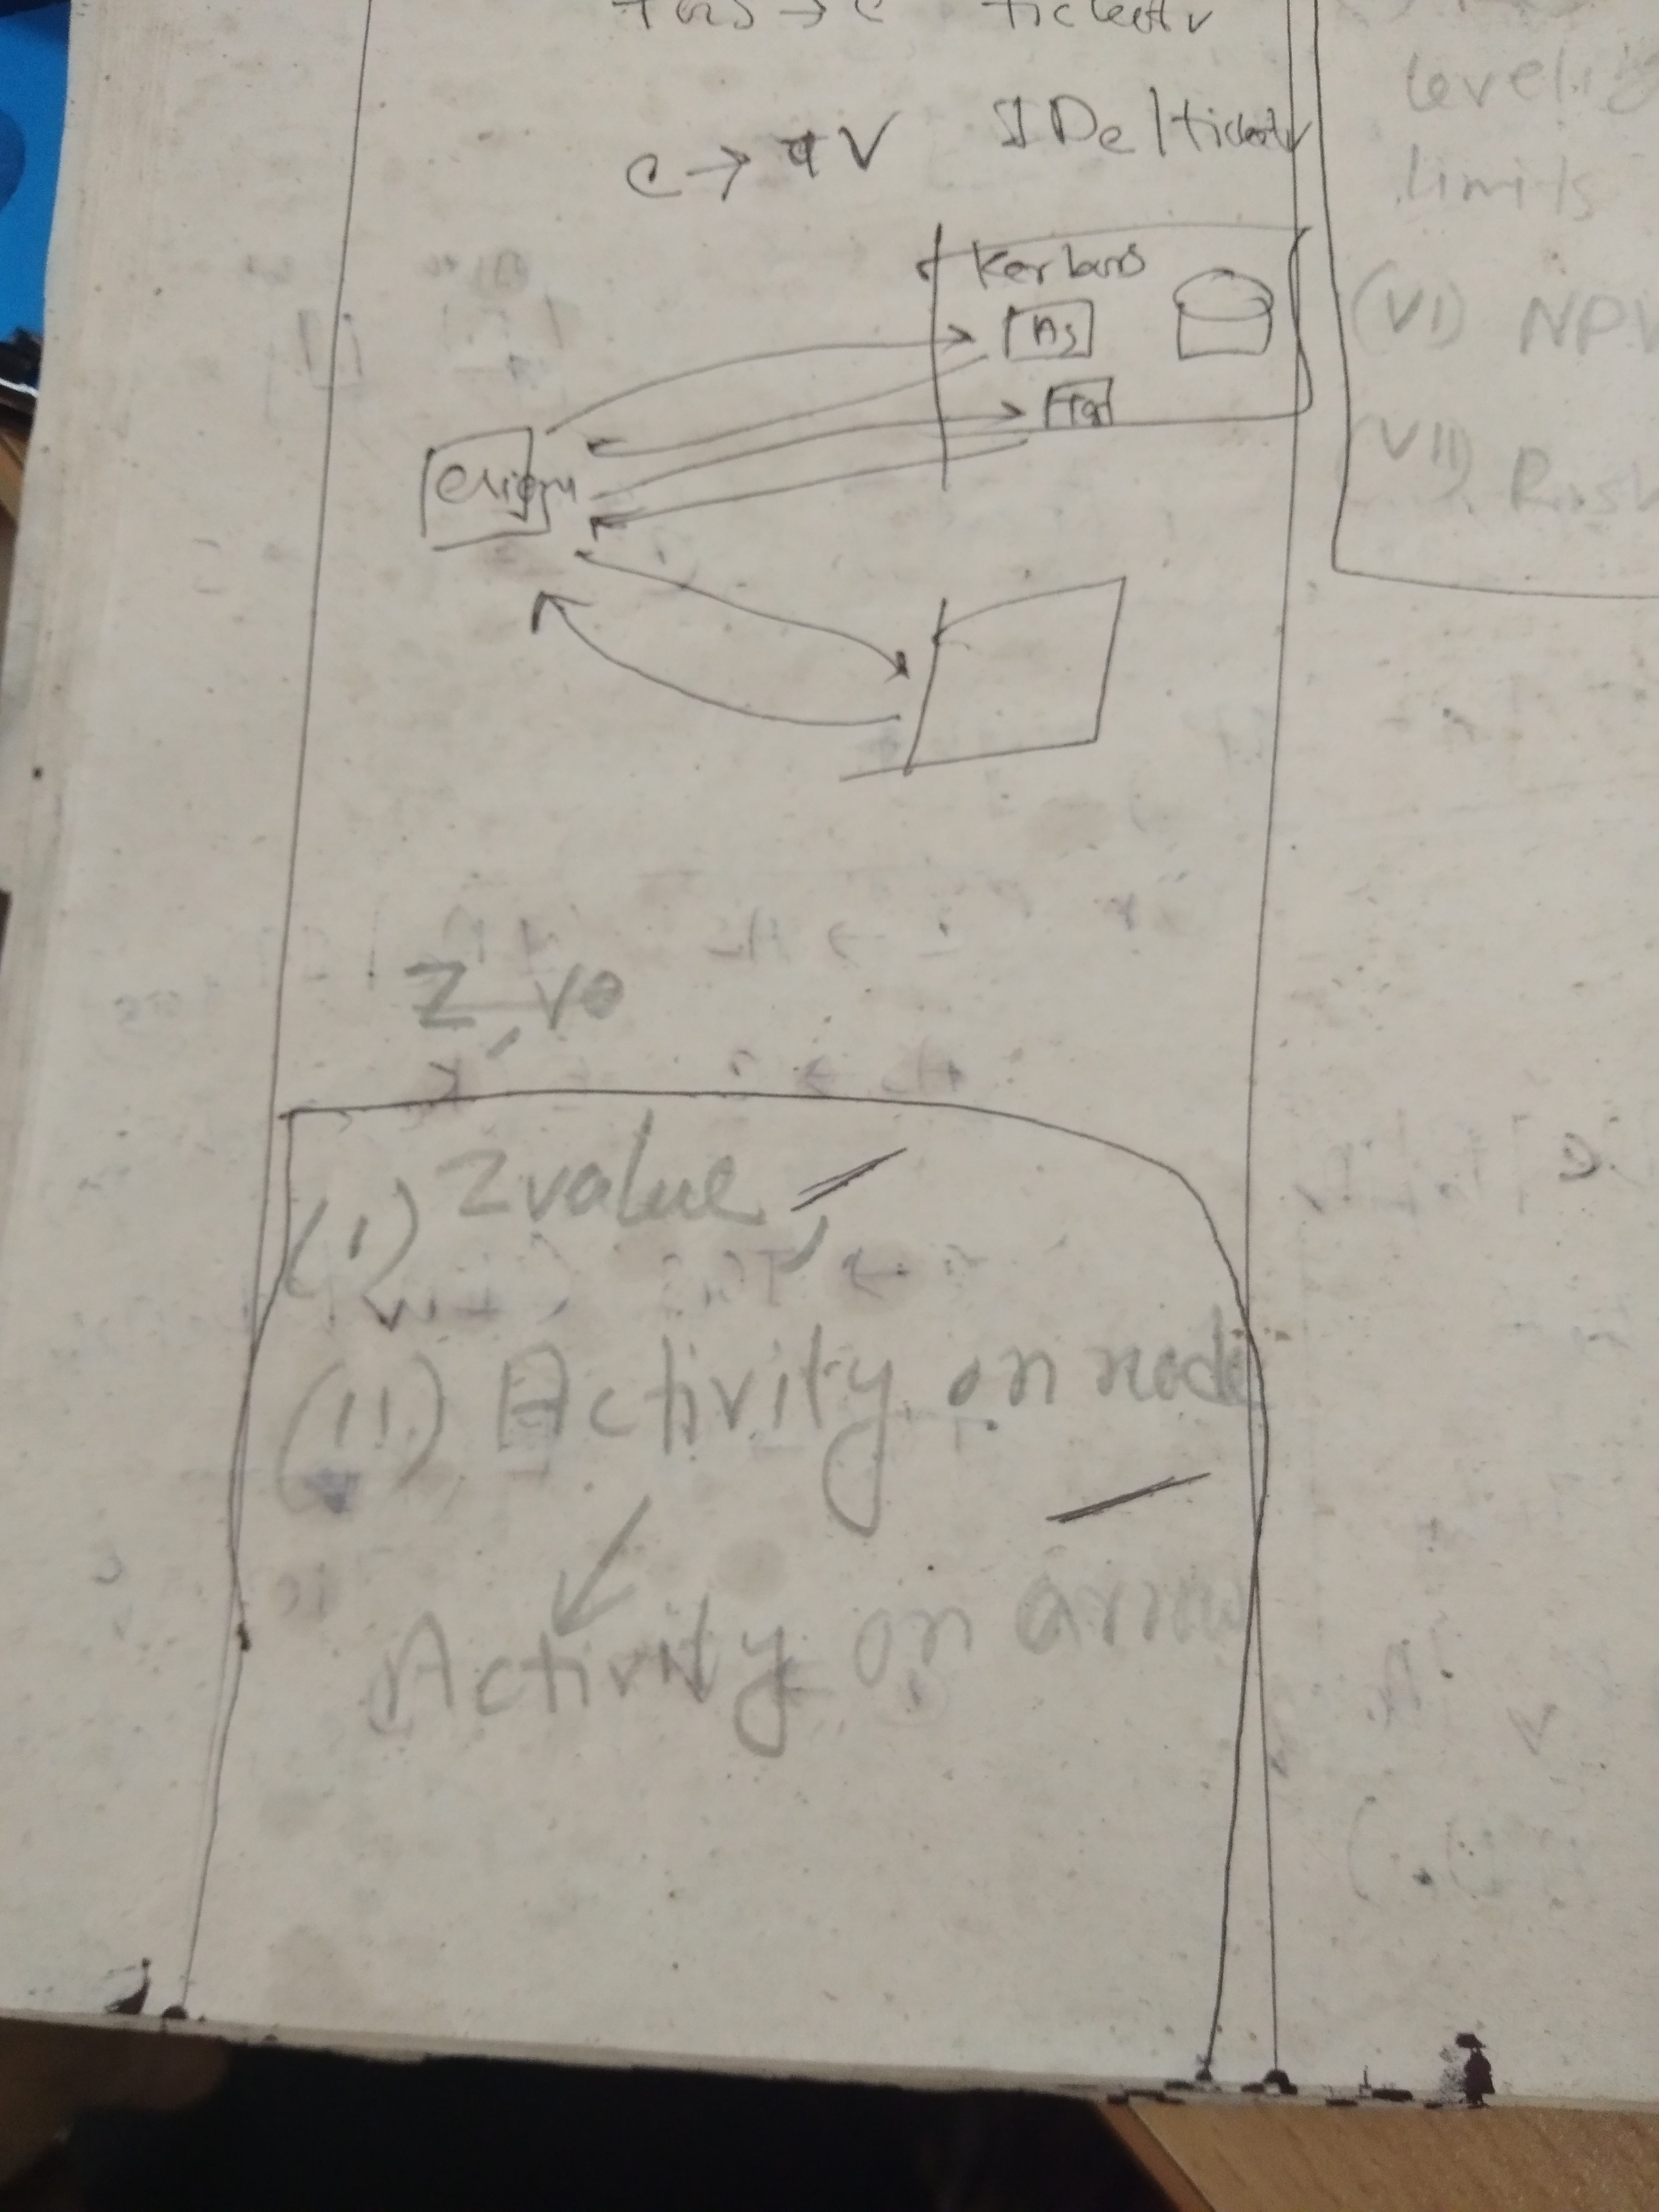 TGS → C ticketv
C → V IDc/ticketv
Kerbars
As
Tgs
Z, ve
(i) Z value,
(ii) Activity on node
Activity on arrow
leveling
limits
(VI) NPV
(VII) Risk